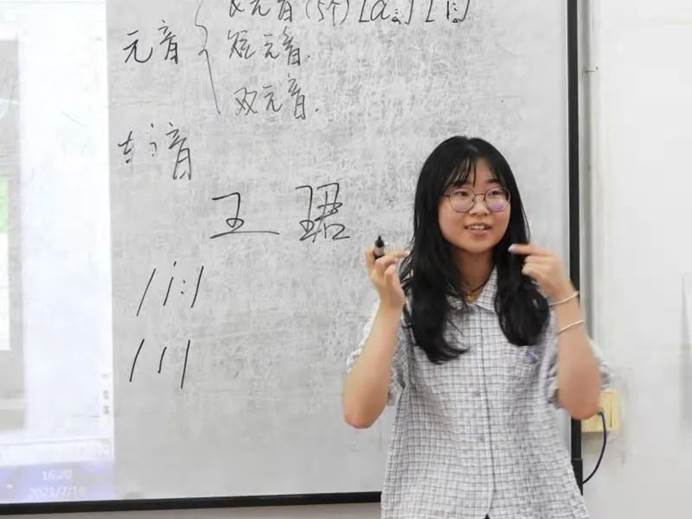 长元音(5个) [ɑː] [iː]
元音
短元音.
双元音.
辅音
王珺
/iː/
/ɪ/
16:20
2023/7/18